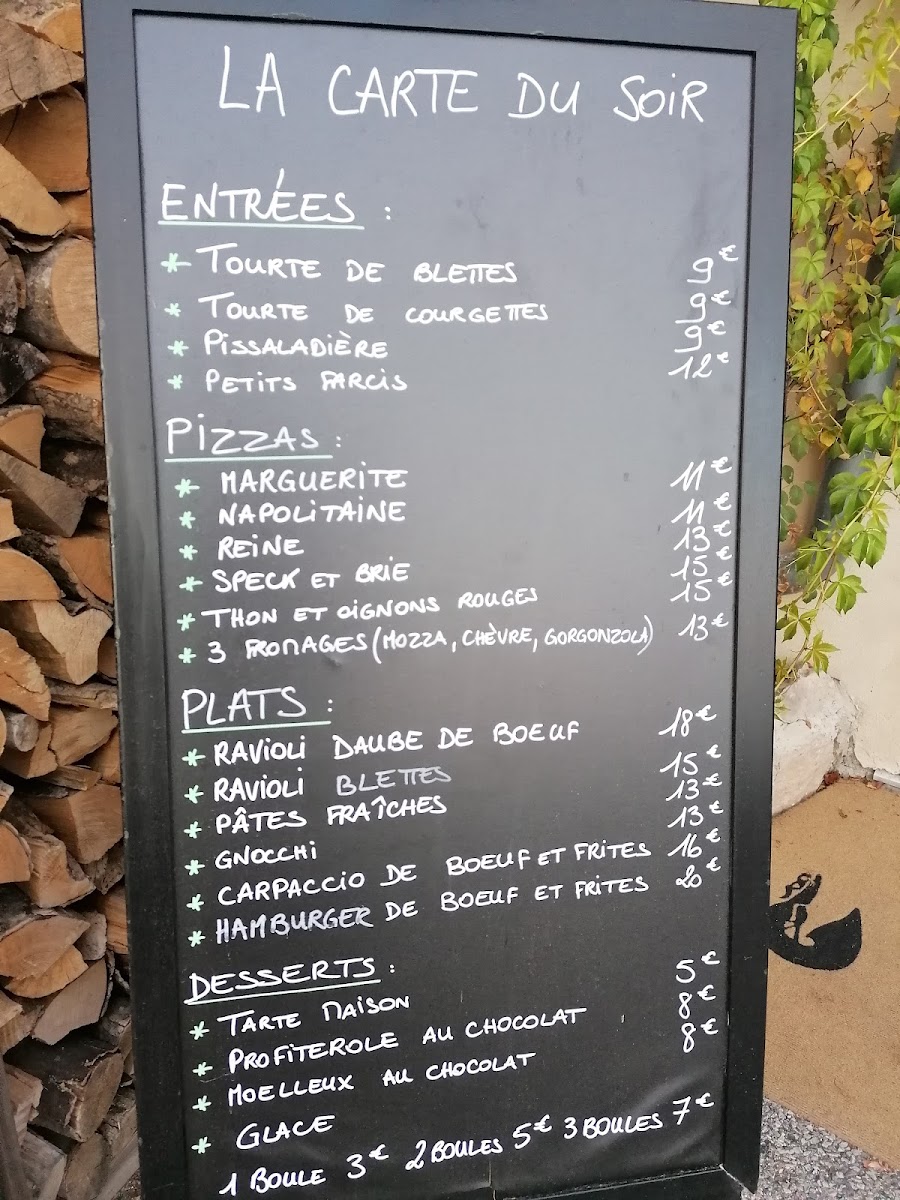 LA CARTE DU SOIR
ENTRÉES :
* TOURTE DE BLETTES 9€
* TOURTE DE COURGETTES 9€
* PISSALADIÈRE 9€
* PETITS FARCIS 12€
PIZZAS :
* MARGUERITE 11€
* NAPOLITAINE 11€
* REINE 13€
* SPECK ET BRIE 15€
* THON ET OIGNONS ROUGES 15€
* 3 FROMAGES (MOZZA, CHÈVRE, GORGONZOLA) 13€
PLATS :
* RAVIOLI DAUBE DE BOEUF 18€
* RAVIOLI BLETTES 15€
* PÂTES FRAÎCHES 13€
* GNOCCHI 13€
* CARPACCIO DE BOEUF ET FRITES 16€
* HAMBURGER DE BOEUF ET FRITES 20€
DESSERTS :
* TARTE MAISON 5€
* PROFITEROLE AU CHOCOLAT 8€
* MOELLEUX AU CHOCOLAT 8€
* GLACE
1 BOULE 3€ 2 BOULES 5€ 3 BOULES 7€